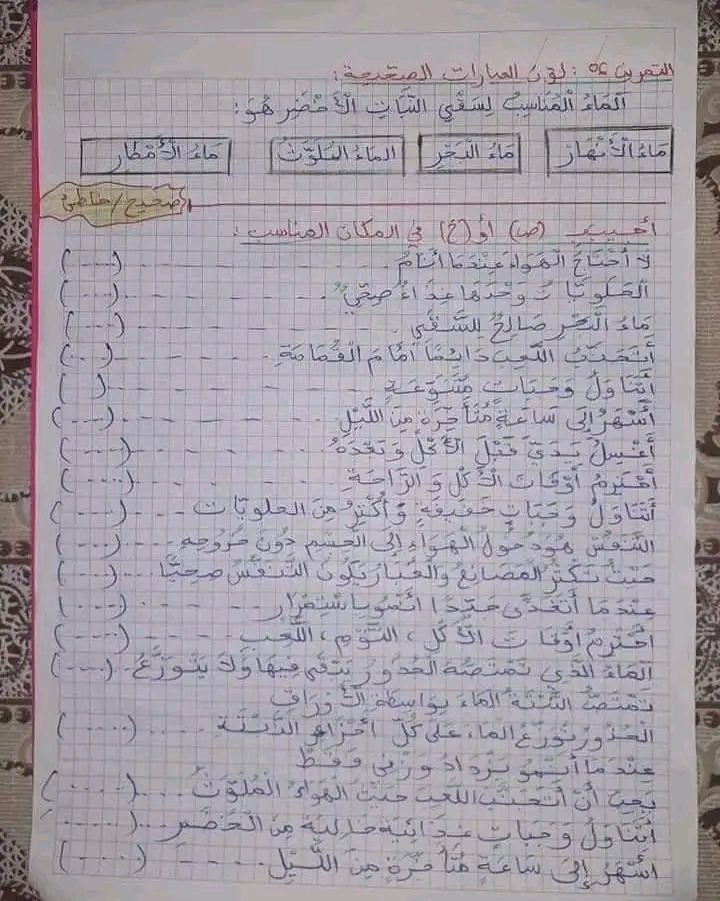 التمرين 05: لون العبارات الصحيحة:
اَلمَاءُ الْمُنَاسِبُ لِسَقْيِ النَّبَاتِ الْأَخْضَرِ هُوَ:
مَاءُ الْأَنْهَارِ مَاءُ الْبَحْرِ الماءُ المُلَوَّثُ مَاءُ الْأَمْطَارِ
صحيح/خاطئ
أجيب (ص) أو (خ) في المكان المناسب:
لا أَحْتَاجُ الْهَوَاءَ عِنْدَمَا أَنَامُ (....)
الْحَلَوِيَّاتُ وَحْدَهَا غِذَاءٌ صِحِّيٌّ (....)
مَاءُ الْبَحْرِ صَالِحٌ لِلسَّقْيِ (....)
أَتَجَنَّبُ اللَّعِبَ دَائِمًا أَمَامَ الْقُمَامَةِ (....)
أَتَنَاوَلُ وَجَبَاتٍ مُتَنَوِّعَةٍ ( )
أَسْهَرُ إِلَى سَاعَةٍ مُتَأَخِّرَةٍ مِنَ اللَّيْلِ (....)
أَغْسِلُ يَدَيَّ قَبْلَ الْأَكْلِ وَبَعْدَهُ (....)
أَحْتَرِمُ أَوْقَاتَ الْأَكْلِ وَ الرَّاحَةِ (....)
أَتَنَاوَلُ وَجَبَاتٍ خَفِيفَةٍ وَ أُكْثِرُ مِنَ الحلويات (....)
التَّنَفُّسُ هُوَ دُخُولُ الْهَوَاءِ إِلَى الْجِسْمِ دُونَ خُرُوجِهِ (....)
حَيْثُ تَكْثُرُ المَصَانِعُ وَالْغُبَارُ يَكُونُ التَّنَفُّسُ صِحِيًّا (....)
عِنْدَمَا أَتَغَذَّى جَيِّدًا أَنْمُو بِاسْتِمْرَارٍ (....)
أَحْتَرِمُ أَوْقَاتَ الْأَكْلِ، النَّوْمِ، اللَّعِبِ (....)
اَلمَاءُ الَّذِي تَمْتَصُّهُ الْجُذُورُ يَبْقَى فِيهَا وَلَا يَتَوَزَّعُ (....)
تَمْتَصُّ النَّبْتَةُ الْمَاءَ بِوَاسِطَةِ الْأَوْرَاقِ
الْجُذُورُ تُوَزِّعُ الماء عَلَى كُلِّ أَجْزَاءِ النَّبْتَةِ (....)
عِنْدَمَا أَنْمُو يَزْدَادُ وَزْنِي فَقَطْ
يَجِبُ أَنْ أَتَجَنَّبَ اللَّعِبَ حَيْثُ الْهَوَاءُ الْمُلَوَّثُ (....)
أَتَنَاوَلُ وَجَبَاتٍ غِذَائِيَّةٍ خَالِيَةٍ مِنَ الْخُضَرِ (.....)
أَسْهَرُ إِلَى سَاعَةٍ مُتَأَخِّرَةٍ مِنَ اللَّيْلِ (....)